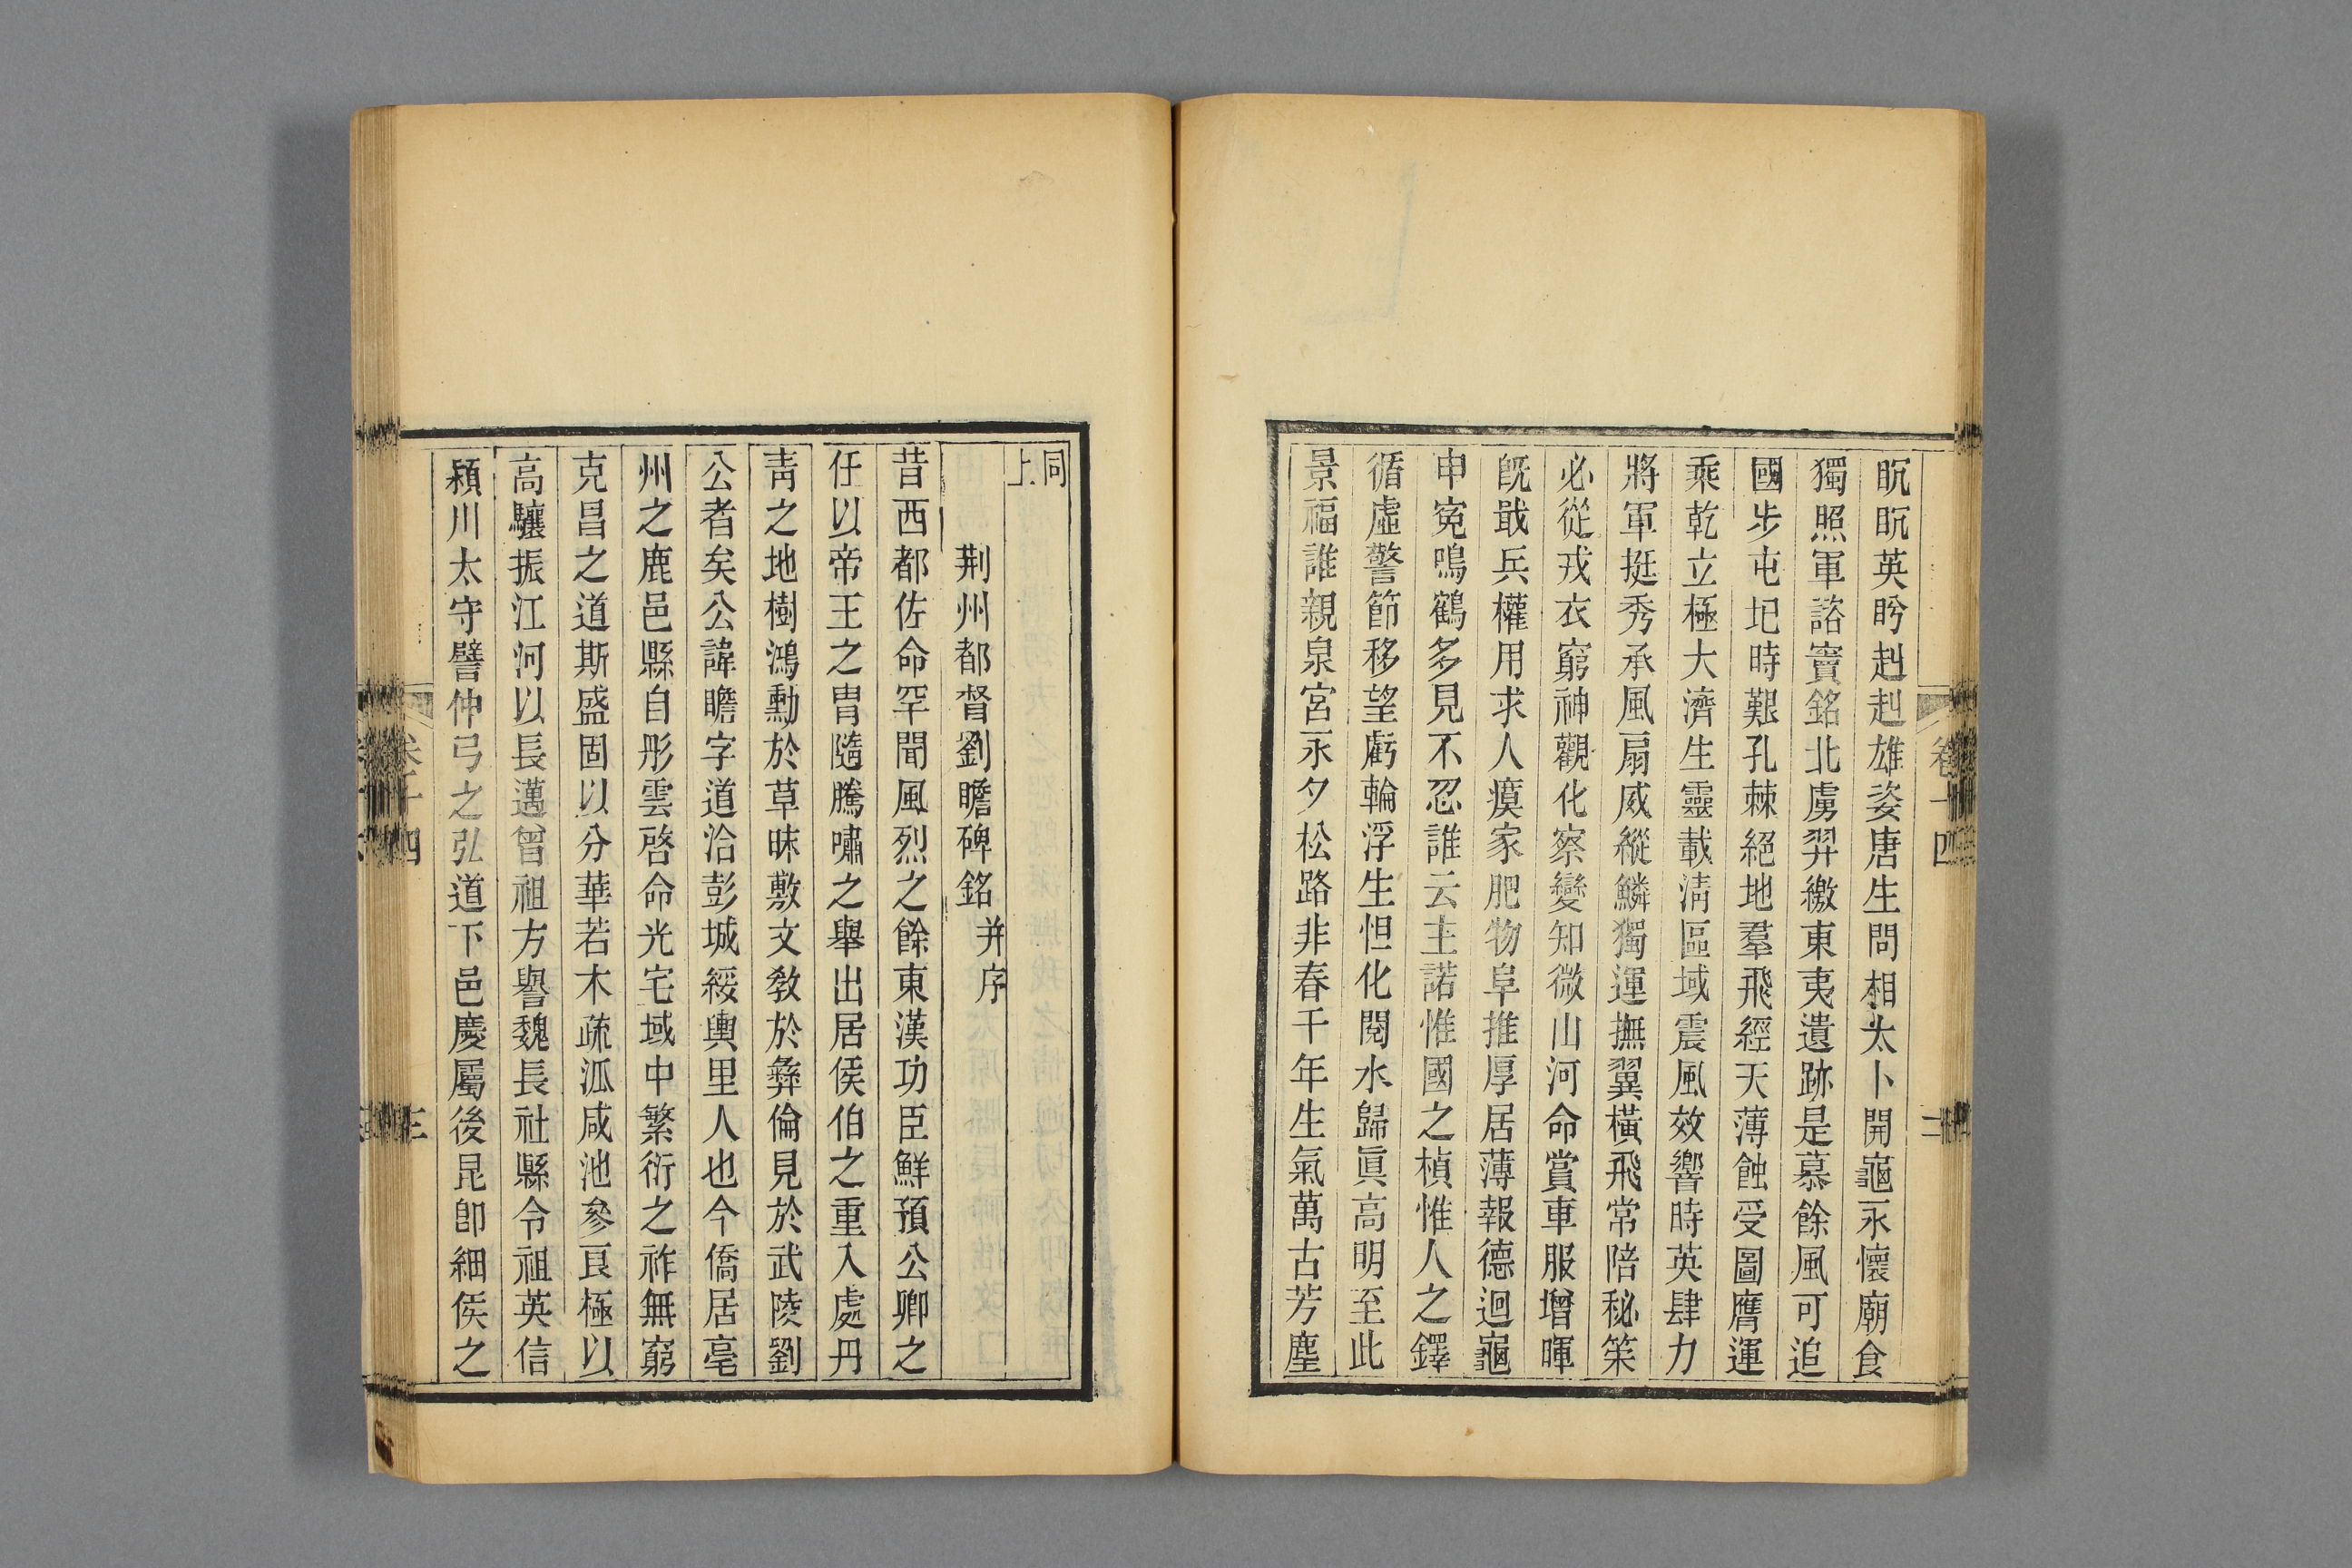 眖眖英眄赳赳雄姿唐生問相太卜開龜永懷廟食
獨照軍諮竇銘北虜羿繳東夷遺跡是慕餘風可追
國步屯圯時艱孔棘絕地羣飛經天薄蝕受圖膺運
乘乾立極大濟生靈載淸區域震風效響時英肆力
將軍挺秀承風扇威縱鱗獨運撫翼橫飛常陪秘策
必從戎衣窮神觀化察變知微山河命賞車服增暉
旣戢兵權用求人瘼家肥物阜推厚居薄報德迴龜
申寃鳴鶴多見不忍誰云主諾惟國之楨惟人之鐸
循虛警節移望虧輪浮生怛化閱水歸眞高明至此
景福誰親泉宮永夕松路非春千年生氣萬古芳塵
卷十四
二
同上
荆州都督劉瞻碑銘并序
昔西都佐命罕聞風烈之餘東漢功臣鮮預公卿之
任以帝王之冑隨騰嘯之舉出居侯伯之重入處丹
靑之地樹鴻勳於草昧敷文敎於彝倫見於武陵劉
公者矣公諱瞻字道洽彭城綏輿里人也今僑居亳
州之鹿邑縣自彤雲啓命光宅域中繁衍之祚無窮
克昌之道斯盛固以分華若木疏派咸池參良極以
高驤振江河以長邁曾祖方譽魏長社縣令祖英信
潁川太守譬仲弓之弘道下邑慶屬後昆卽細侯之
四
三